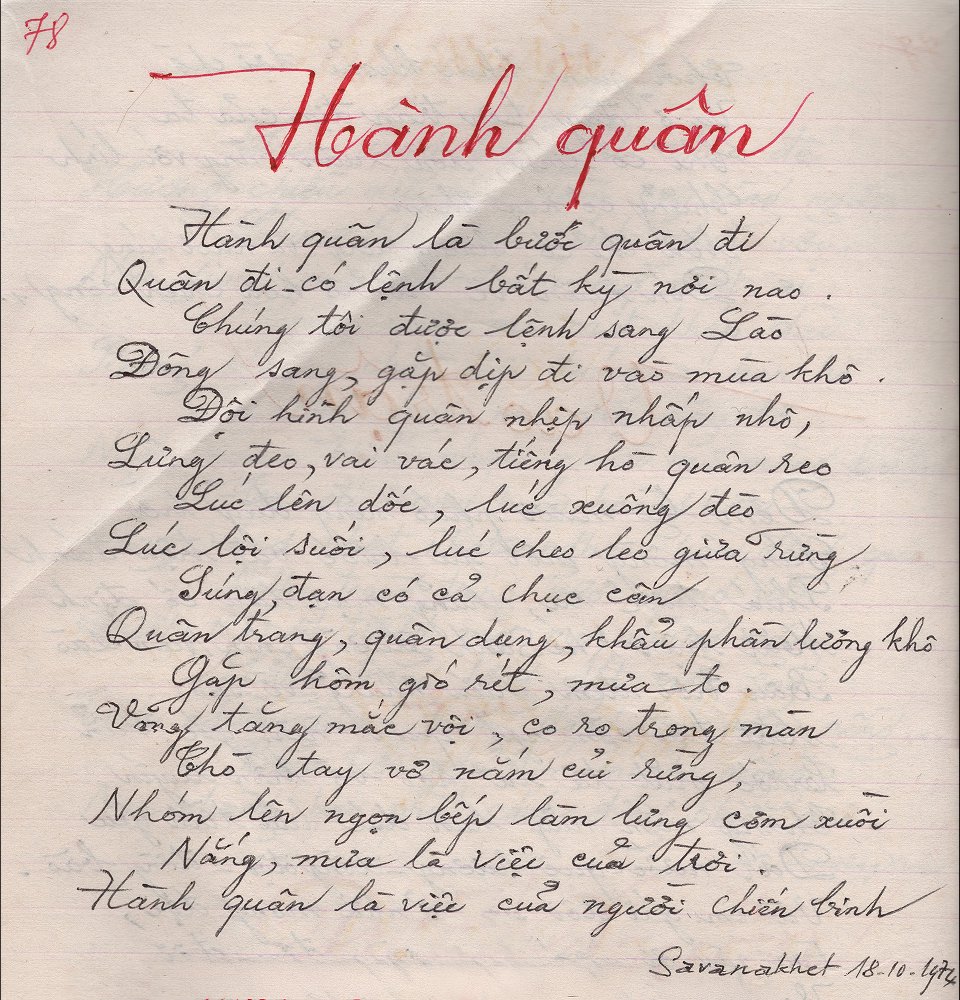 78
Hành quân
Hành quân là bước quân đi
Quân đi có lệnh bất kỳ nơi nao.
Chúng tôi được lệnh sang Lào
Đông sang, gặp dịp đi vào mùa khô.
Đội hình quân nhịp nhấp nhô,
Lưng đeo, vai vác, tiếng hò quân reo
Lúc lên dốc, lúc xuống đèo
Lúc lội suối, lúc cheo leo giữa rừng
Súng, đạn có cả chục cân
Quân trang, quân dụng, khẩu phần lương khô
Gặp hôm gió rét, mưa to.
Võng tăng mắc vội, co ro trong màn
Thò tay vơ nắm củi rừng,
Nhóm lên ngọn bếp làm lưng cơm xuồi
Nắng, mưa là việc của trời.
Hành quân là việc của người chiến binh
Savanakhet 18-10-1974